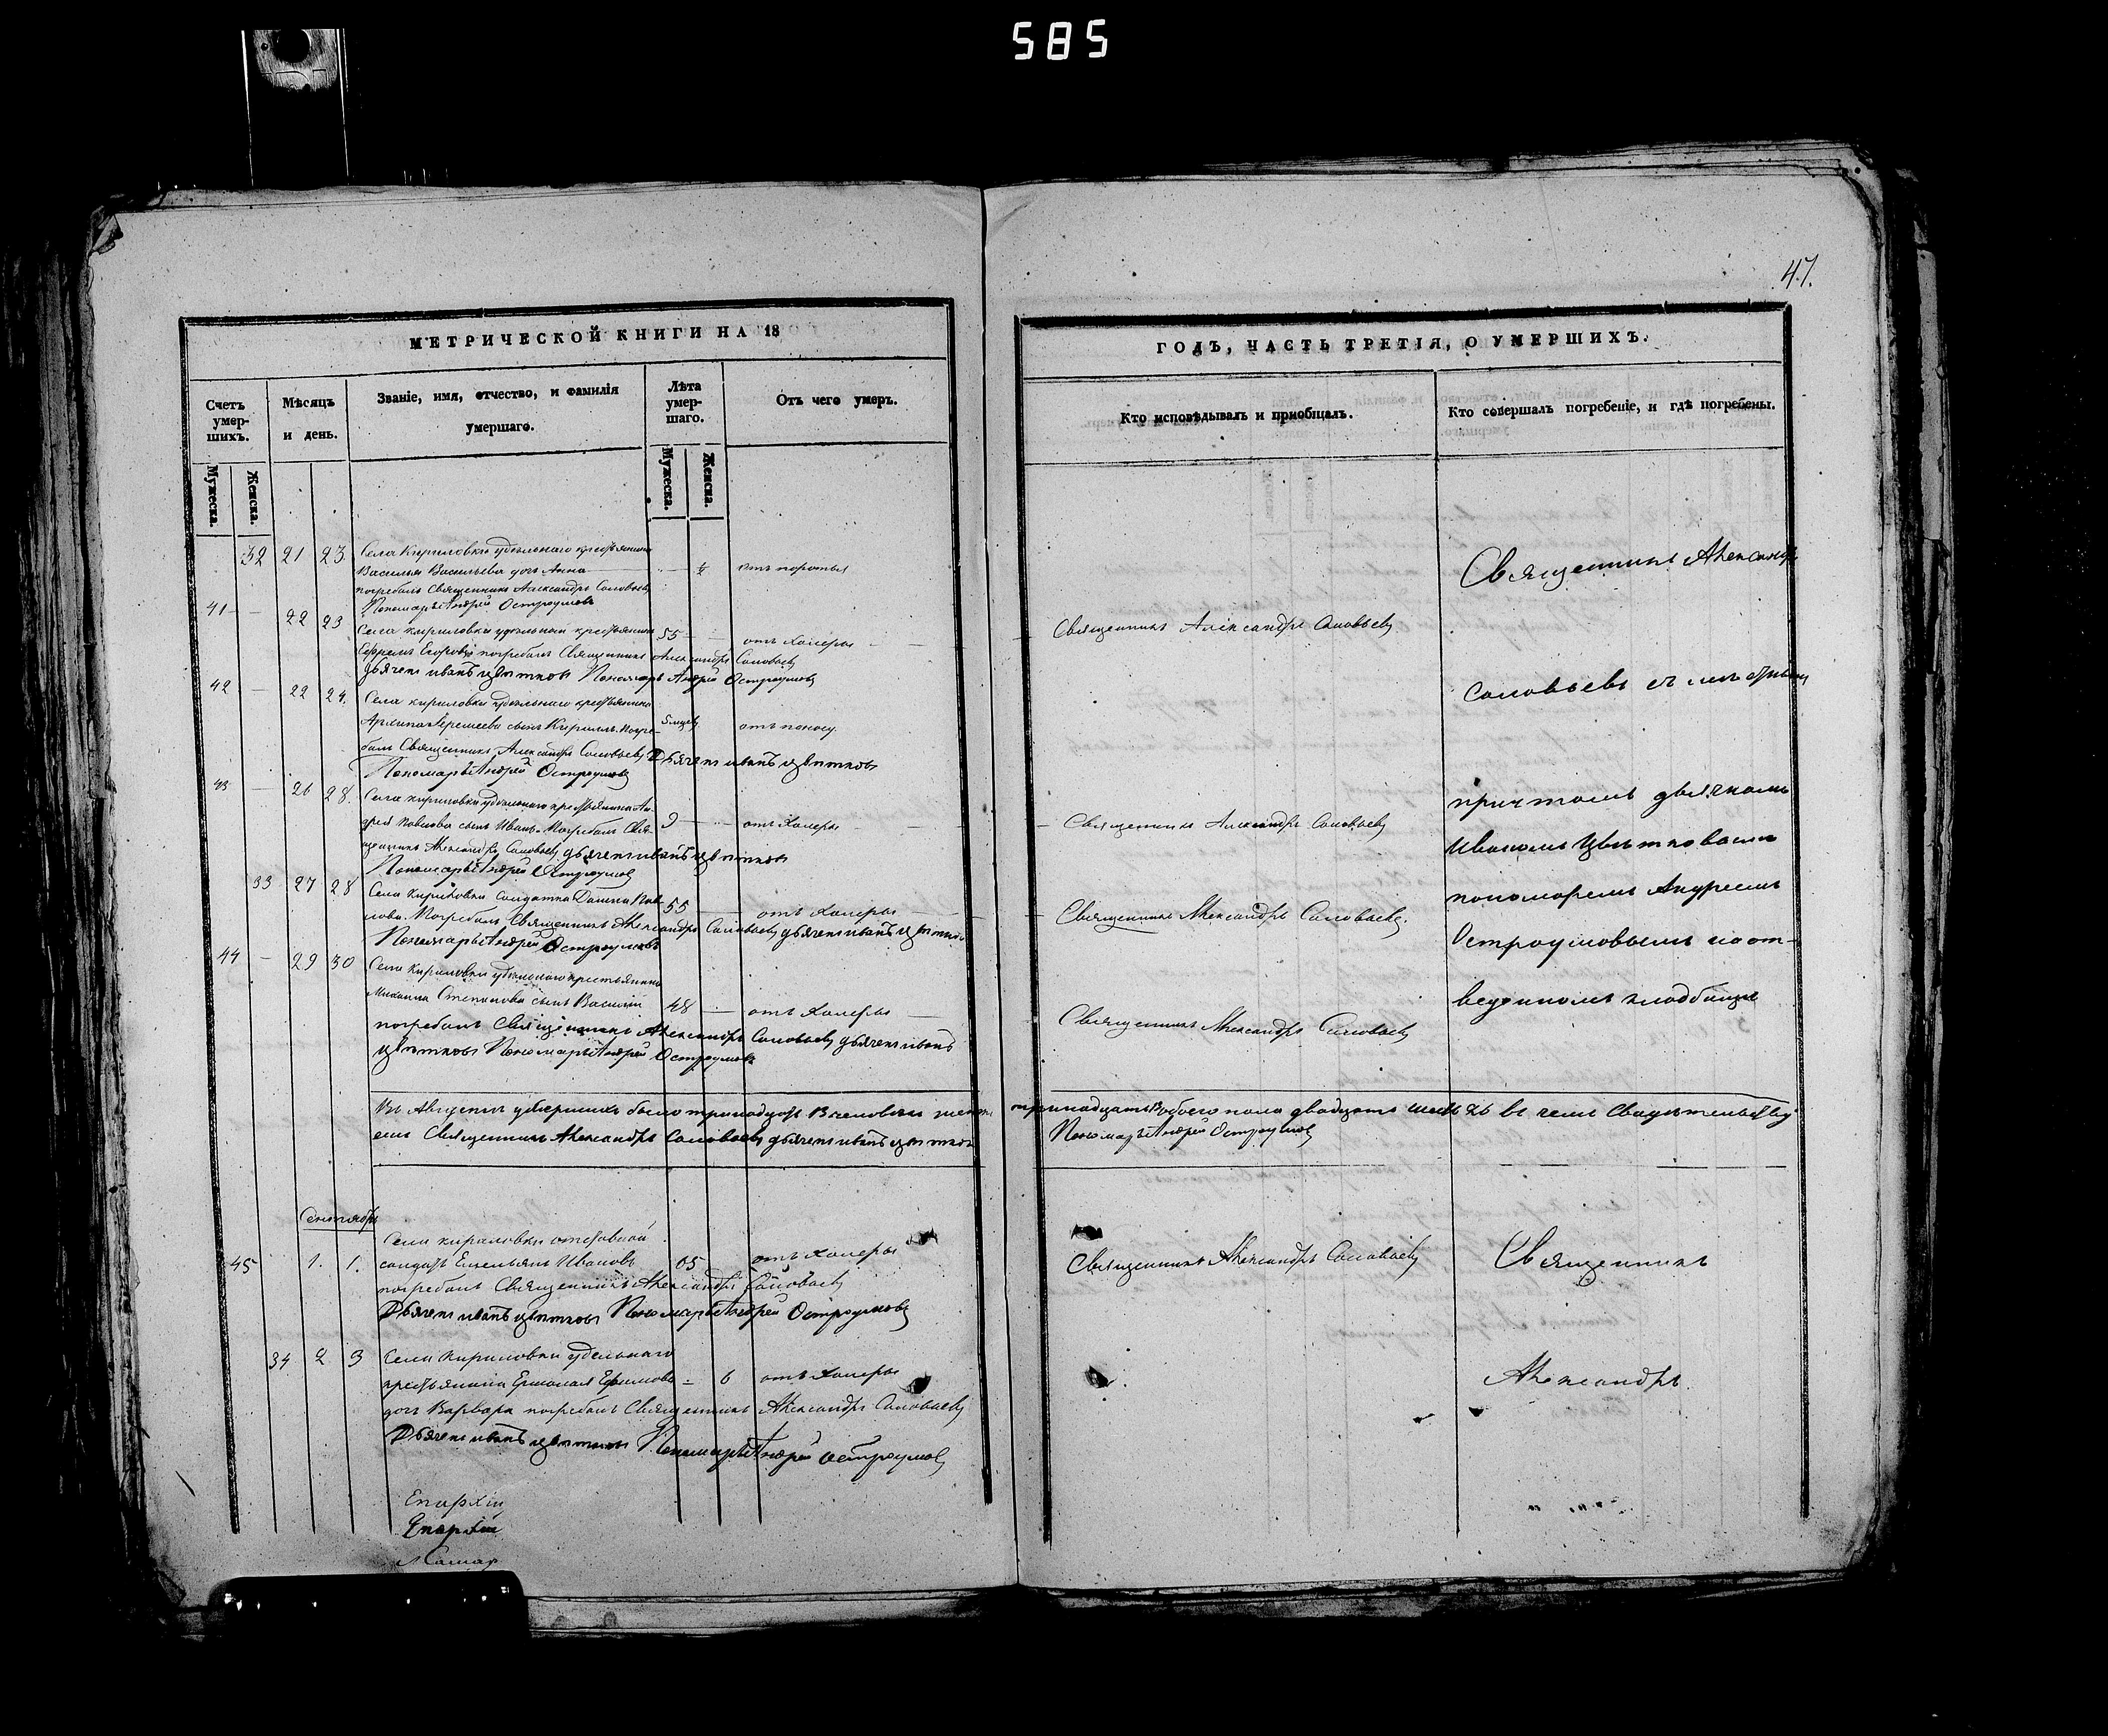 585
47.
МЕТРИЧЕСКОЙ КНИГИ НА 18
Счетъ умершихъ.
Мѣсяцъ и день.
Званіе, имя, отчество, и фамилія умершаго.
Лѣта умершаго.
Отъ чего умеръ.
Мужеска.
Женска.
Мужеска.
Женска.
32 21 23 Села Кириловки удѣльнаго крестьянина
Василья Васильева дочь Анна
погребалъ Священникъ Александръ Соловьевъ
Пономарь Андрей Остроумовъ
41 22 23
Села Кириловки удѣльный крестьянинъ 55 отъ холеры
Егоровъ погребалъ Священникъ Александръ Соловьевъ
дьячекъ иванъ цвѣтковъ Пономарь Андрей Остроумовъ
42 22 24. Села кириловки удѣльнаго крестьянина
сынъ Кирилъ. Погре- отъ поносу.
балъ Священникъ Александръ Соловьевъ Дьячекъ иванъ цвѣтковъ
Пономарь Андрей Остроумовъ
43 26 28. Села кириловки удѣльнаго крестьянина Ан-
дрея Павлова сынъ Иванъ. Погребалъ Свя- 9 отъ Холеры
щенникъ Александръ Соловьевъ дьячекъ иванъ цвѣтковъ
Пономарь Андрей Остроумовъ
33 27 28 Села Кириловки солдатка Пав-
лова. Погребалъ Священникъ Александръ Соловьевъ дьячекъ иванъ цвѣтковъ
55 отъ Холеры
Пономарь Андрей Остроумовъ
44 29 30 Села Кириловки удѣльнаго крестьянина
Михаила Степанова сынъ Василій 48 отъ Холеры
погребалъ Священникъ Александръ Соловьевъ дьячекъ иванъ
цвѣтковъ Пономарь Андрей Остроумовъ
ГОДЪ, ЧАСТЬ ТРЕТІЯ, О УМЕРШИХЪ.
Кто исповѣдывалъ и пріобщалъ.
Кто совершалъ погребеніе, и гдѣ погребены.
Священникъ Александръ
Священникъ Александръ Соловьевъ
Соловьевъ
Священникъ Александръ Соловьевъ
причтомъ дьячкомъ
Иваномъ Цвѣтковымъ
Священникъ Александръ Соловьевъ.
пономоремъ Андреемъ
Остроумовымъ на от-
Священникъ Александръ Соловьевъ
кладбищѣ
Въ Августѣ умершихъ было тринадцать 13 человѣкъ тринадцать 13 обоего пола двадцать шесть 26 въ чемъ Свидѣтельству
емъ Священникъ Александръ Соловьевъ дьячекъ иванъ цвѣтковъ Пономарь Андрей Остроумовъ
Сентябрь
45 1. 1. Села кириловки отставной
солдатъ Емельянъ Ивановъ 65 отъ холеры
погребалъ Священникъ Александръ Соловьевъ
Дьячекъ иванъ цвѣтковъ Пономарь Андрей Остроумовъ
34 2 3 Села Кириловки удѣльнаго
крестьянина Ермолая Ефимова 6 отъ холеры
дочь Варвара погребалъ Священникъ Александръ Соловьевъ
Дьячекъ иванъ цвѣтковъ Пономарь Андрей Остроумовъ
Епархіи
Епархіи
Священникъ Александръ Соловьевъ
Священникъ
Александръ.